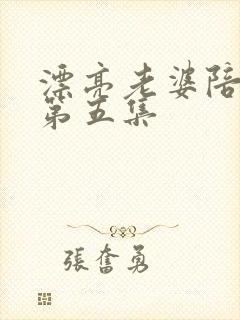 漂亮老婆陪
第五集
張奮勇